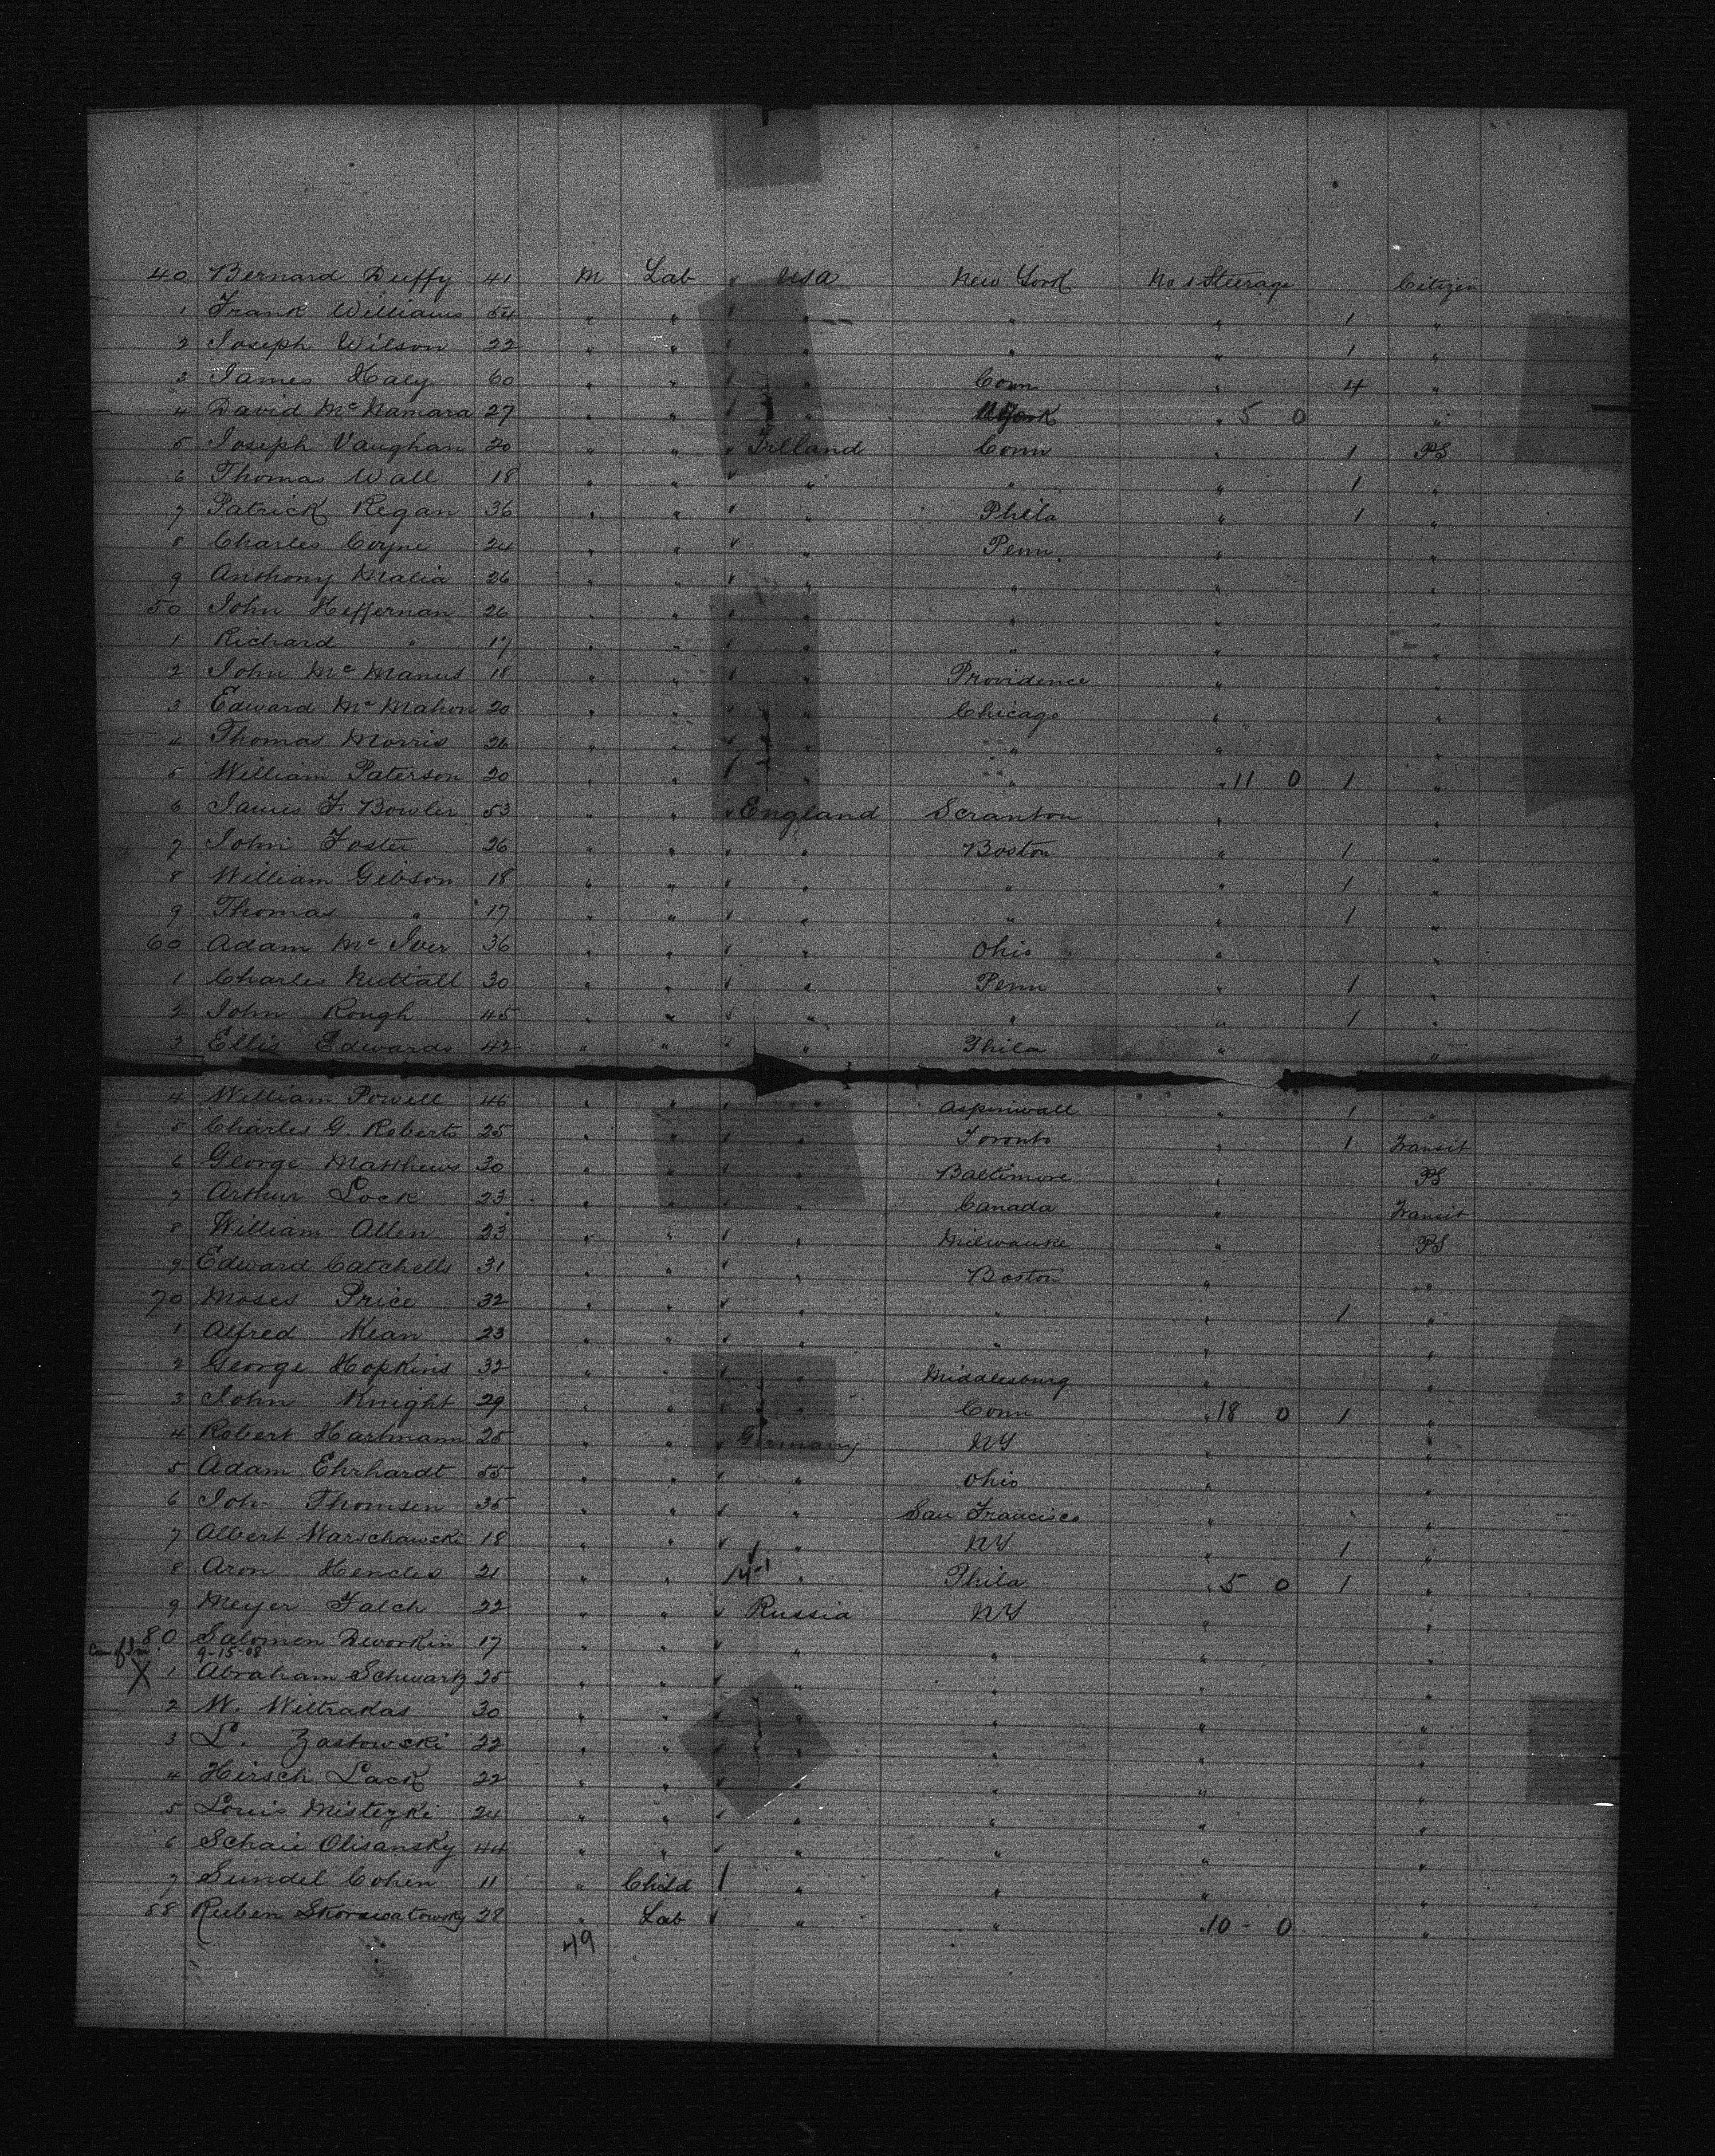 40 Bernard Duffy 41 M Lab " USA New York No 1 Steerage Citizen
1 Frank Williams 54 " " " " " " 1 "
2 Joseph Wilson 22 " " " " " 1 "
3 James Haly 60 " " " Conn " 4 "
4 David McNamara 27 " " " N York " 5 0 "
5 Joseph Vaughan 20 " " " Irelland Conn " 1 PS
6 Thomas Wall 18 " " " " " 1 "
7 Patrick Regan 36 " " " Phila " 1 "
8 Charles Coyne 24 " " " Penn " "
9 Anthony Malia 26 " " " " " "
50 John Heffernan 26 " " " " " "
1 Richard " 17 " " " " " "
2 John McManus 18 " " " Providence " "
3 Edward McMahon 20 " " " Chicago " "
4 Thomas Morris 26 " " " " " "
5 William Paterson 20 " " " " " 11 0 1 "
6 James F. Bowler 53 " " " England Scranton " "
7 John Foster 26 " " " Boston " 1 "
8 William Gibson 18 " " " " " 1 "
9 Thomas " 17 " " " " " 1 "
60 Adam McIver 36 " " " Ohio " "
1 Charles Nuttall 30 " " " Penn " 1 "
2 John Rough 45 " " " " " 1 "
3 Ellis Edwards 42 " " " Phila " "
4 William Powell 46 " " " Aspinwall " 1 "
5 Charles G. Roberts 25 " " " Toronto " 1 Transit
6 George Matthews 30 " " " Baltimore " PS
7 Arthur Lock 23 " " " Canada " Transit
8 William Allen 23 " " " Milwauke " PS
9 Edward Catchells 31 " " " Boston " "
70 Moses Price 32 " " " " " 1 "
1 Alfred Kean 23 " " " " " "
2 George Hopkins 32 " " " Middlesburg " "
3 John Knight 29 " " " Conn " 18 0 1 "
4 Robert Hartmann 25 " " " Germany NY " "
5 Adam Ehrhardt 55 " " " Ohio " "
6 Joh. Thomsen 35 " " " San Francisco " "
7 Albert Warschawski 18 " " " NY " 1 "
8 Aron Hencles 21 " " " Phila " 5 0 1 "
9 Meyer Falch 22 " " Russia NY " "
80 Salomen Dworkin 17 " " " " " "
9-15-08
X 1 Abraham Schwartz 25 " " " " " "
2 W. Wiltrakas 30 " " " " " "
3 L. Zastowski 22 " " " " " "
4 Hirsch Lack 22 " " " " " "
5 Louis Mistezki 24 " " " " " "
6 Schaie Olisansky 44 " " " " " "
7 Sundel Cohen 11 " Child " " " "
88 Ruben Skorawatowsky 28 " Lab " " " 10 - 0 "
49